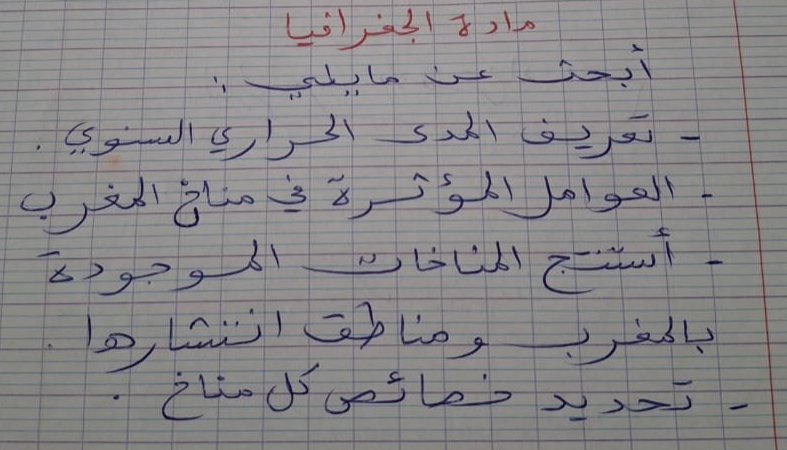 مادة الجغرافيا
أبحث عن مايلي :
- تعريف المدى الحراري السنوي .
- العوامل المؤثرة في مناخ المغرب
- أستنتج المناخات الموجودة
بالمغرب ومناطق انتشارها .
- تحديد خصائص كل مناخ .